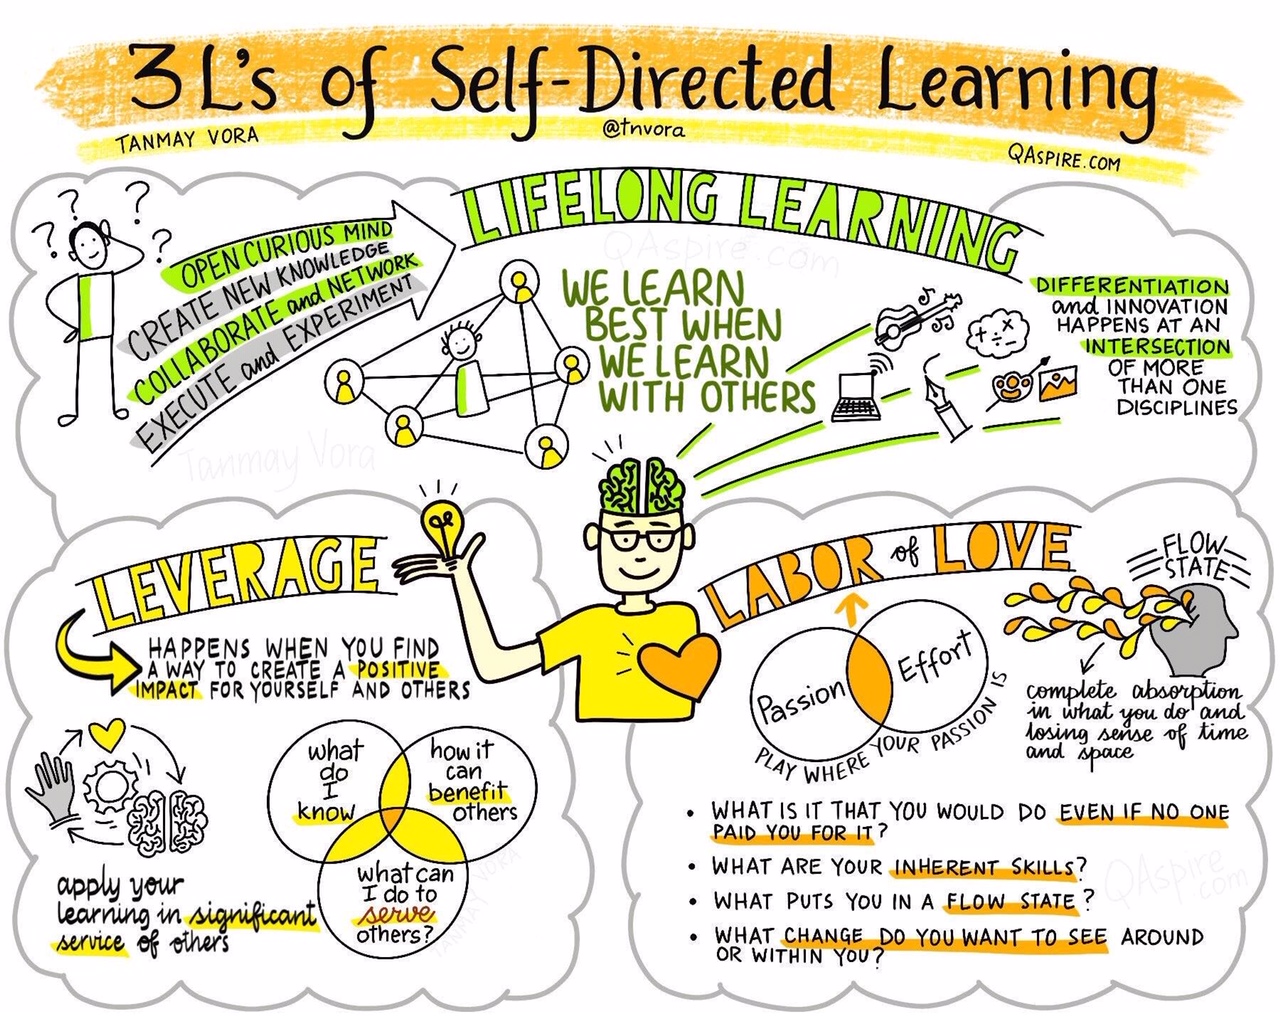 3 L's of Self-Directed Learning
TANMAY VORA
@tnvora
QASPIRE.COM
LIFELONG LEARNING
? ? ? ?
OPEN CURIOUS MIND
CREATE NEW KNOWLEDGE
COLLABORATE and NETWORK
EXECUTE and EXPERIMENT
QAspire.com
WE LEARN
BEST WHEN
WE LEARN
WITH OTHERS
DIFFERENTIATION
and INNOVATION
HAPPENS AT AN
INTERSECTION
OF MORE
THAN ONE
DISCIPLINES
Tanmay Vora
LEVERAGE
HAPPENS WHEN YOU FIND
A WAY TO CREATE A POSITIVE
IMPACT FOR YOURSELF AND OTHERS
what
do
I
know
how it
can
benefit
others
what can
I do to
serve
others?
TANMAY VORA
apply your
learning in significant
service of others
LABOR of LOVE
Passion
Effort
PLAY WHERE YOUR PASSION IS
FLOW
STATE
complete absorption
in what you do and
losing sense of time
and space
• WHAT IS IT THAT YOU WOULD DO EVEN IF NO ONE
PAID YOU FOR IT?
• WHAT ARE YOUR INHERENT SKILLS?
• WHAT PUTS YOU IN A FLOW STATE?
• WHAT CHANGE DO YOU WANT TO SEE AROUND
OR WITHIN YOU?
QAspire
.com